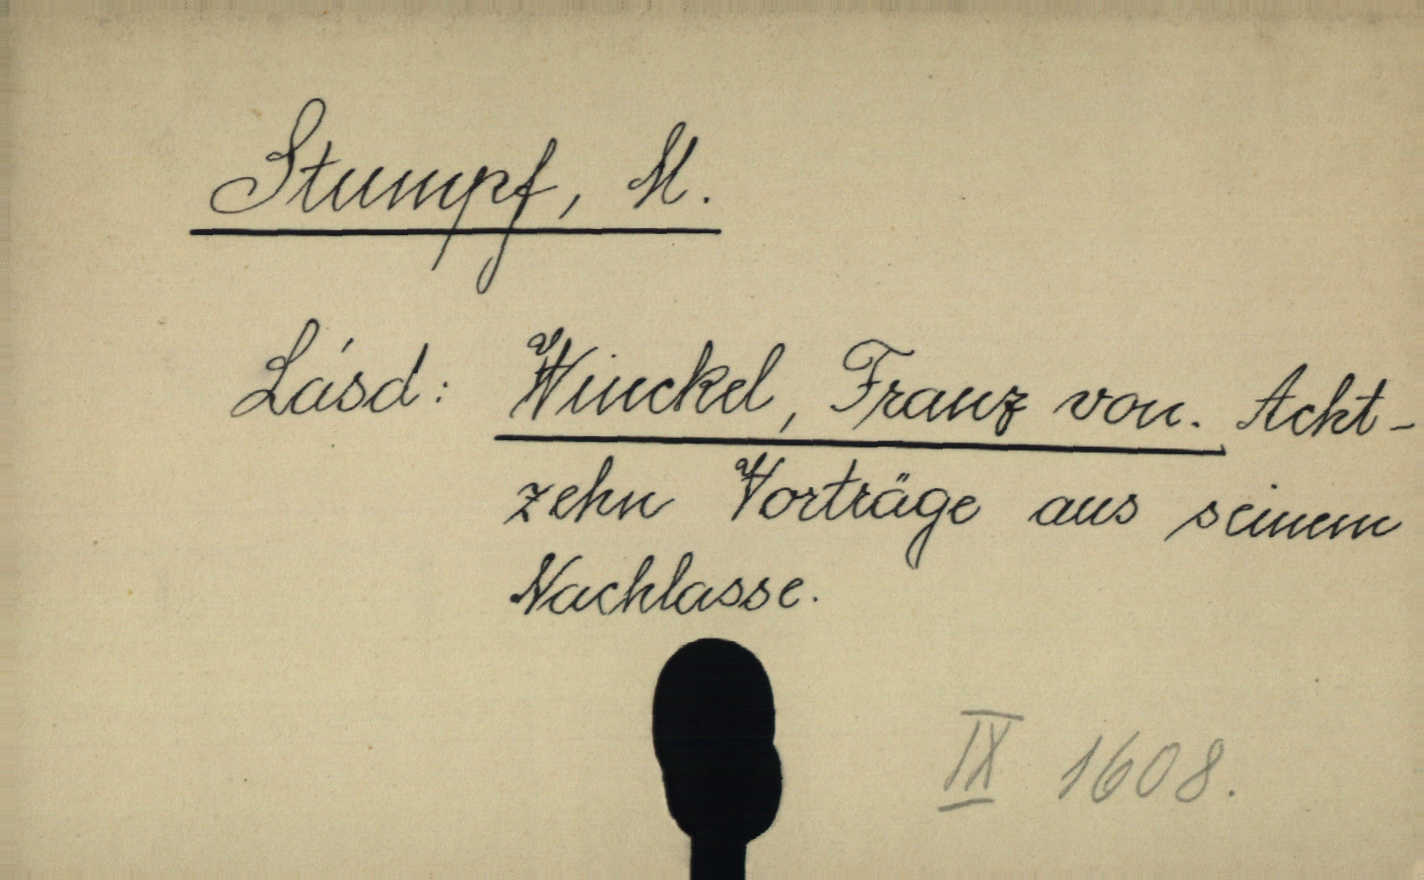 Stumpf, M.
Lásd: Winckel, Franz von. Acht-
zehn Vorträge aus seinem
Nachlasse.
IX 1608.